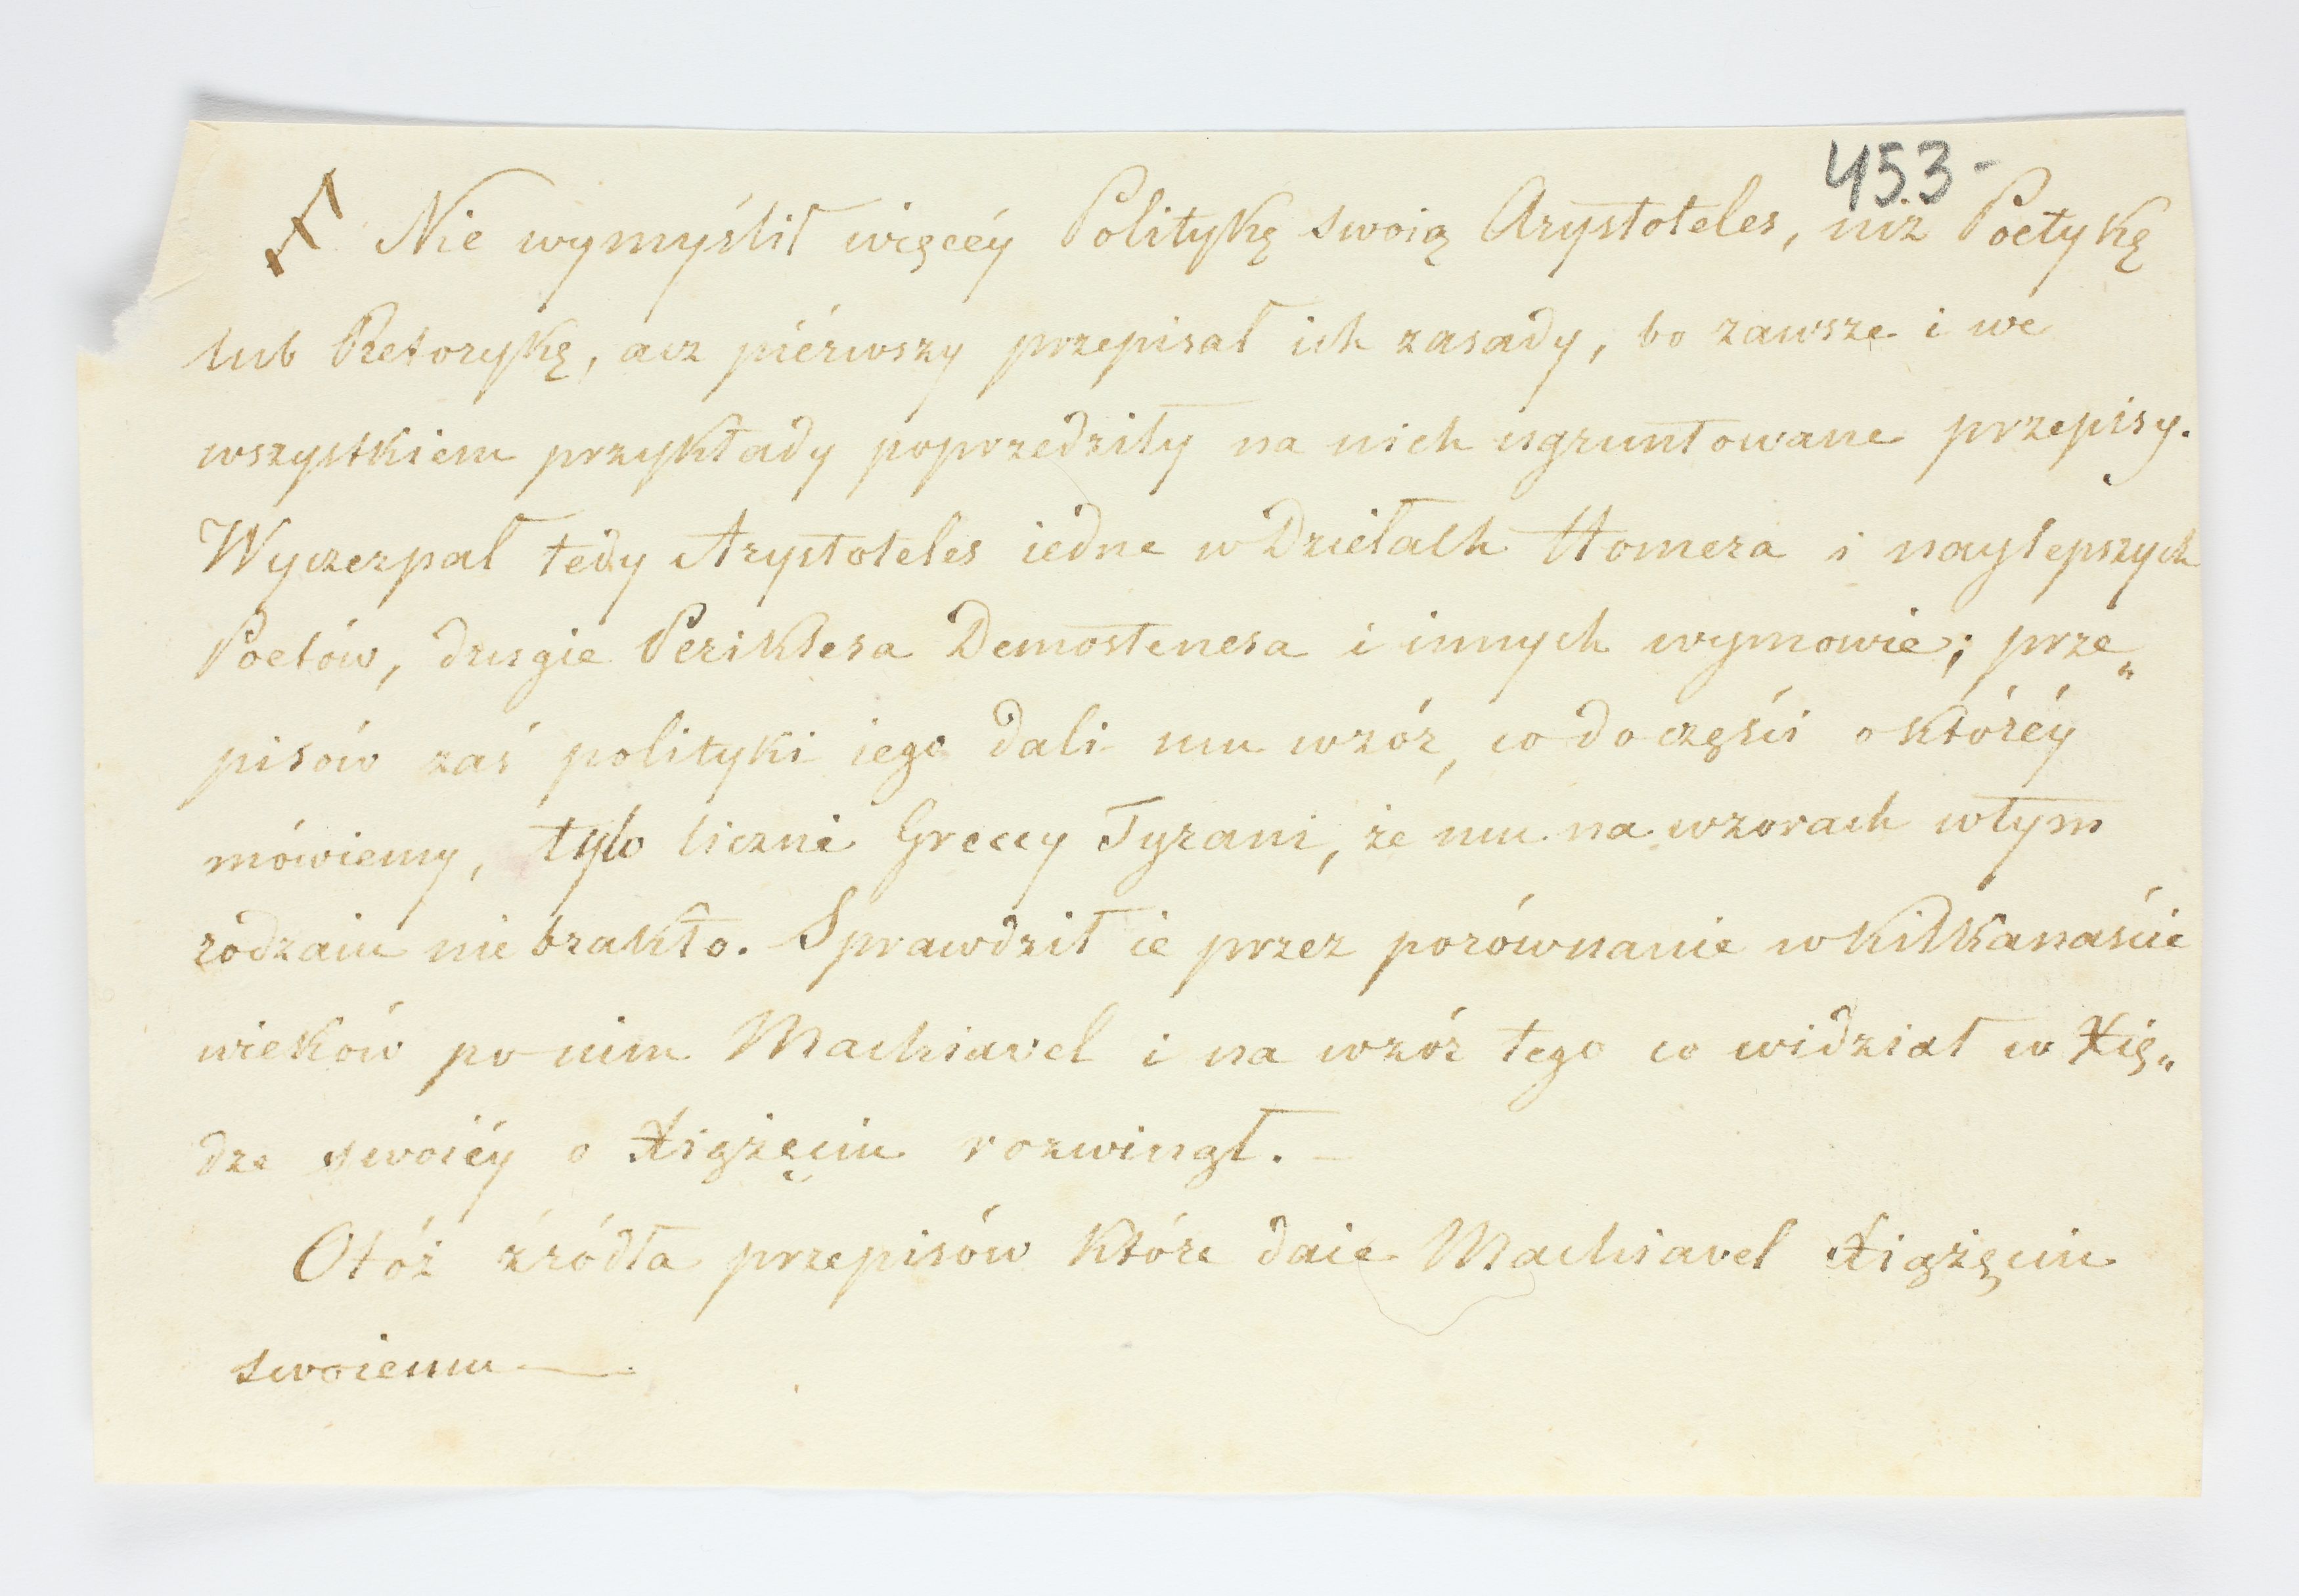 453-
Nie wymyślił więcéy Politykę swoią Arystoteles, niż Poetykę
lub Retorykę, acz piérwszy przepisał ich zasady, bo zawsze i we
wszystkiem przykłady poprzedziły na nich ugruntowane przepisy.
Wyczerpał tedy Arystoteles iedne w Dziełach Homera i naylepszych
Poetów, drugie Periklesa Demostenesa i innych wymowie; prze„
pisów zaś polityki iego dali mu wzór, co do części o któréy
mówiemy, tylo liczni Greccy Tyrani, że mu na wzorach w tym
rodzaiu nie brakło. Sprawdził ie przez porównanie w kilkanaście
wieków po nim Machiavel i na wzór tego co widział w Xię„
dze swoiéy o Xiążęciu rozwinął. –
Otóż źródła przepisów które daie Machiavel Xiążęciu
swoiemu —